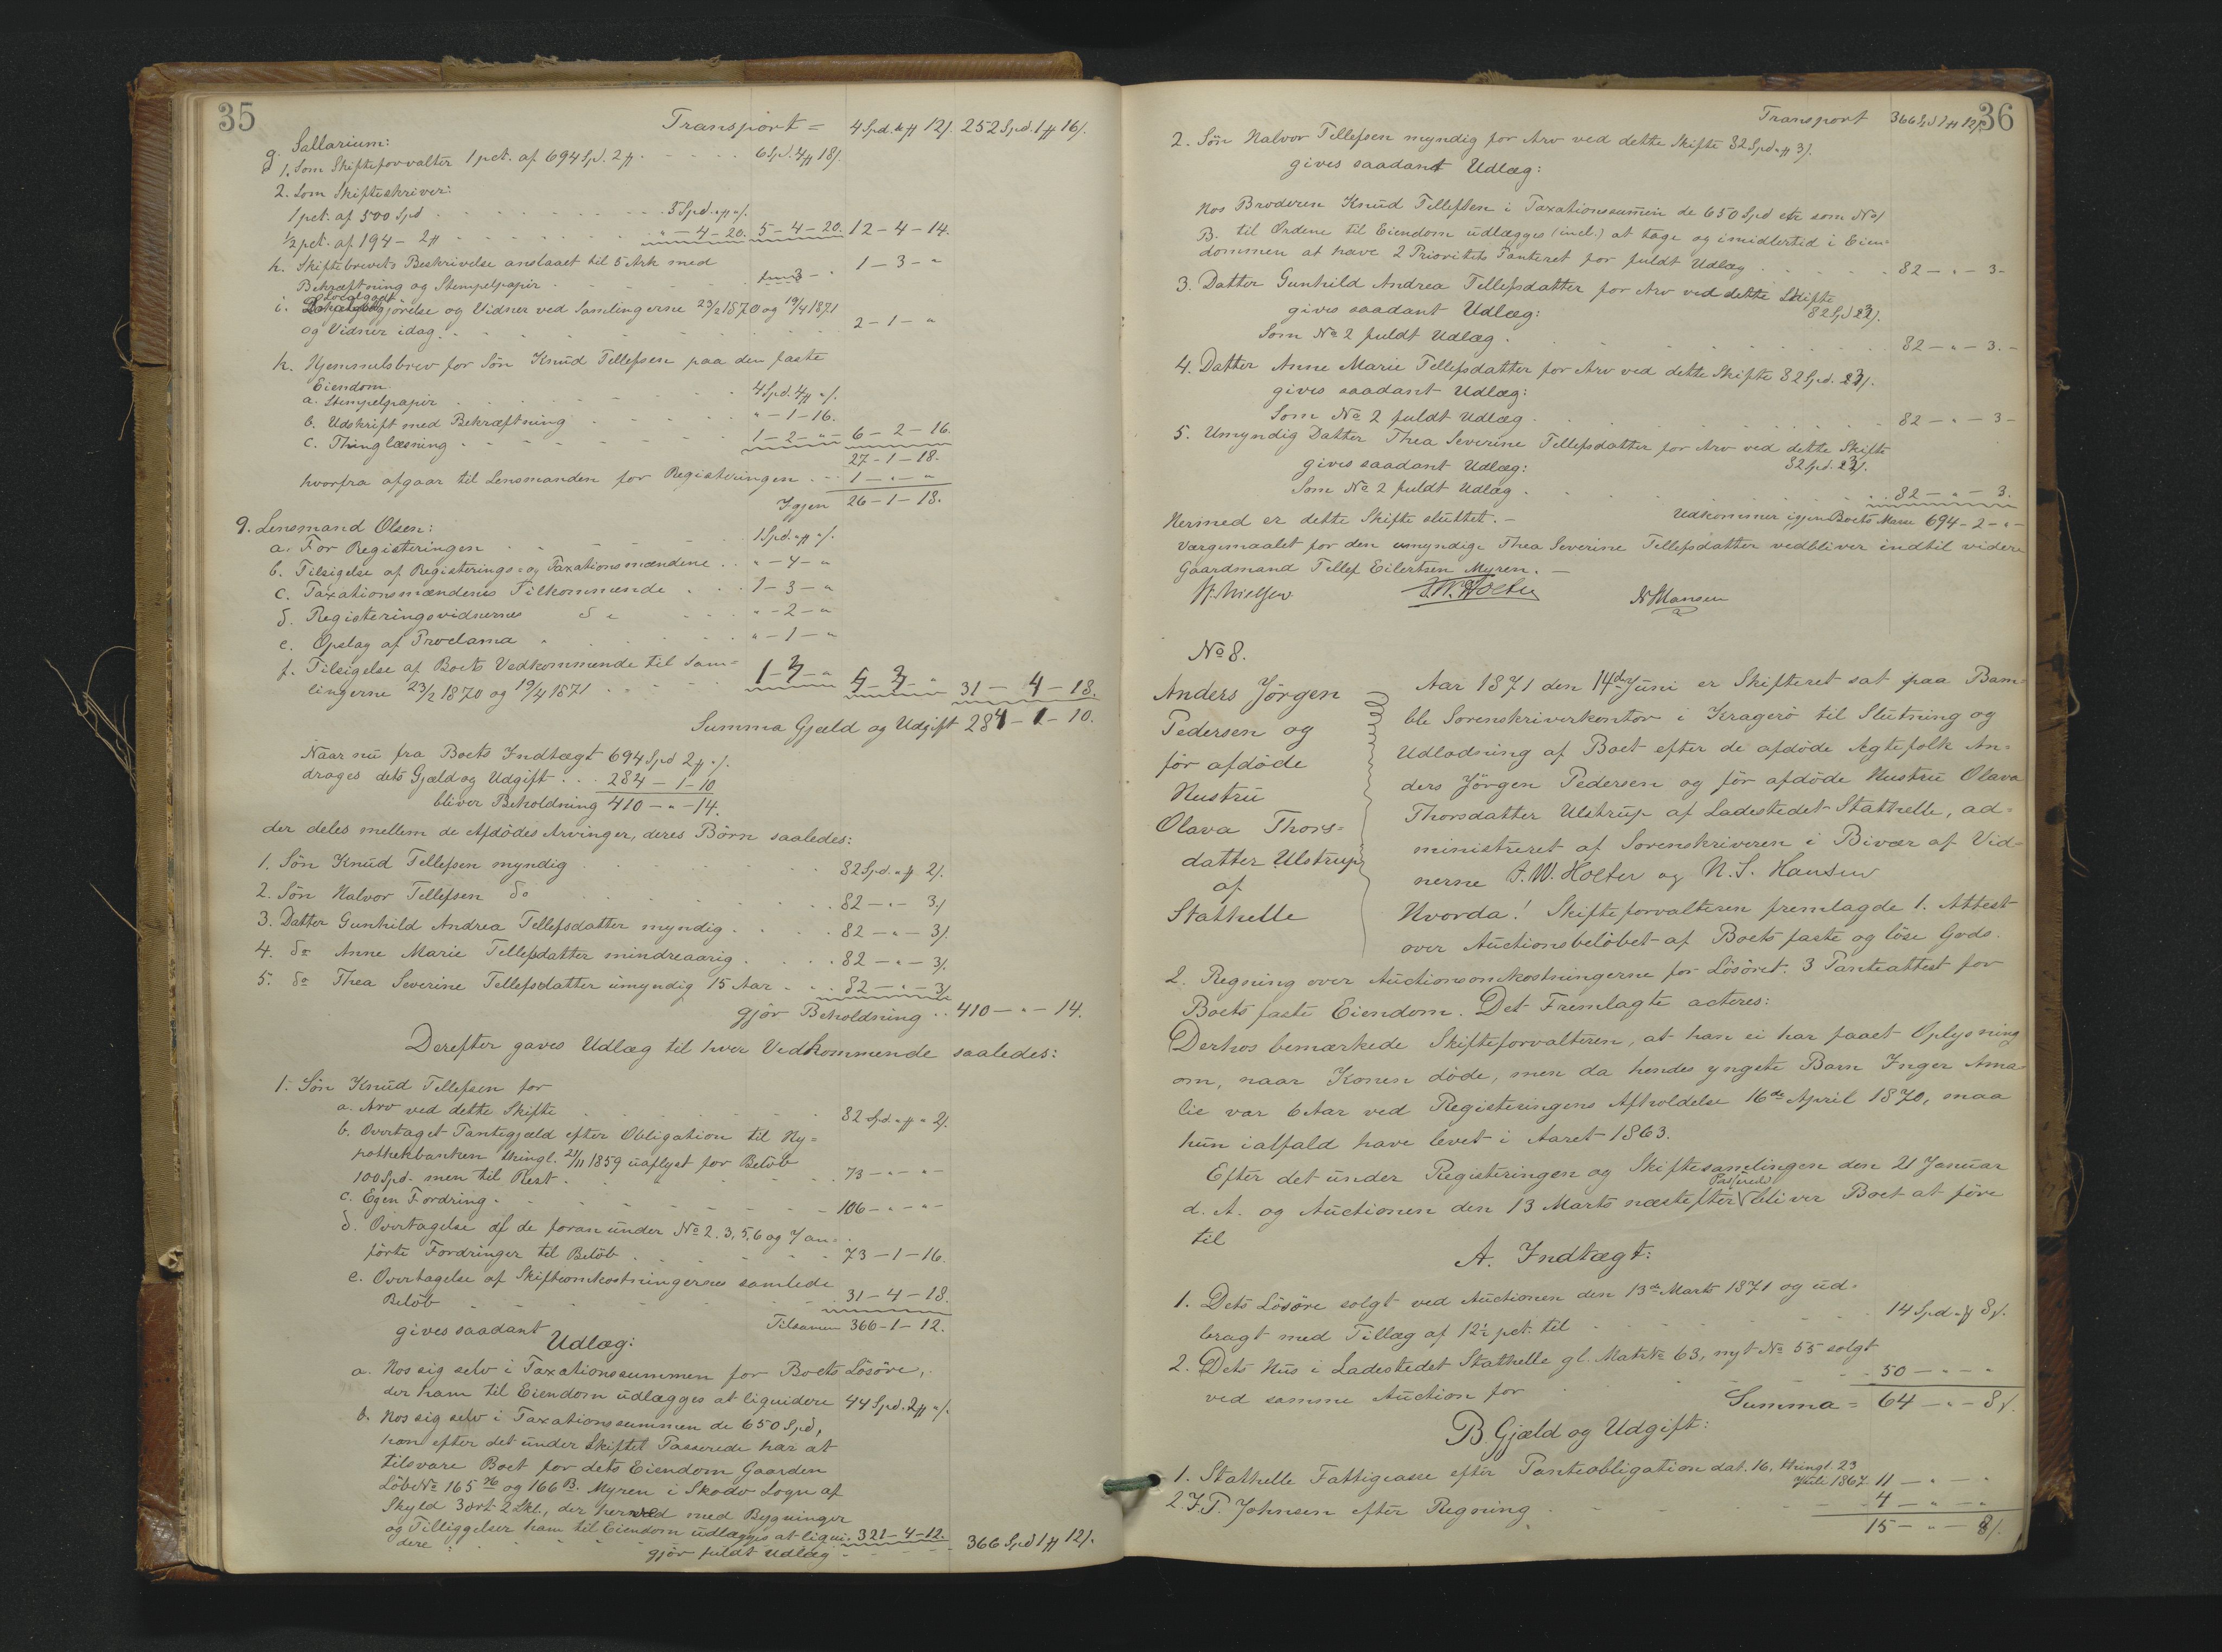 35
Transport = 4 Spd. 4 # 12/. 252 Spd. 1 # 16/.
g. Sallarium:
1. Som Skifteforvalter 1 pct. af 694 Spd. 2 # . 6 Spd. 4 # 18/.
2. Som Skifteskriver:
1 pct. af 500 Spd . . 5 Spd. " # "/.
1/2 pct. af 194 - 2 # . . " - 4 - 20. 5 - 4 - 20. 12 - 4 - 14.
h. Skiftebrevets Beskrivelse anslaaet til 5 Ark med
Bekræftning og Stempelpapir . . 1 - 3 - "
i. gjörelse og Vidner ved Samlingerne 23/2 1870 og 19/4 1871
og Vidner idag . . 2 - 1 - "
k. Hjemmelsbrev for Sön Knud Tellefsen paa den faste
Eiendom
a. Stempelpapir . . 4 Spd. 4 # "/.
b. Udskrift med Bekræftning . . " - 1 - 16.
c. Thinglæsning . . 1 - 2 - " 6 - 2 - 16.
27 - 1 - 18.
hvorfra afgaar til Lensmanden for Registeringen . . 1 - " - "
Igjen 26 - 1 - 18.
9. Lensmand Olsen:
a. For Registeringen . . 1 Spd. " # "/.
b. Tilsigelse af Registerings= og Taxationsmændene . . " - 4 - "
c. Taxationsmændenes Tilkommende . . 1 - 3 - "
d. Registeringsvidnernes do . . " - 2 - "
e. Opslag af Proclama . . " - 1 - "
f. Tilsigelse af Boets Vedkommende til Sam=
lingerne 23/2 1870 og 19/4 1871 . . 31 - 4 - 18.
Summa Gjæld og Udgift 284 - 1 - 10.
Naar nu fra Boets Indtægt 694 Spd 2 # "/.
drages dets Gjæld og Udgift . . 284 - 1 - 10
bliver Beholdning 410 - " - 14.
der deles mellem de Afdödes Arvinger, deres Börn saaledes:
1. Sön Knud Tellefsen myndig . . 82 Spd. " # 2/.
2. Sön Halvor Tellefsen do . . 82 - " - 3/
3. Datter Gunhild Andrea Tellefsdatter myndig . . 82 - " - 3/.
4. do Anne Marie Tellefsdatter mindreaarig . . 82 - " - 3/.
5. do Thea Severine Tellefsdatter umyndig 15 Aar . . 82 - " - 3/
gjör Beholdning . . 410 - " - 14.
Derefter gaves Udlæg til hver Vedkommende saaledes:
1. Sön Knud Tellefsen for
a. Arv ved dette Skifte . . 82 Spd. " # " 2/.
b. Overtaget Pantegjæld efter Obligation til Hy=
pothekbanken thingl. 21/11 1859 uaflyst for Belöb
100 Spd. men til Rest . . 73 - " - "
c. Egen Fordring . . 106 - " - "
d. Overtagelse af de foran under No 2. 3, 5, 6 og 7 an=
förte Fordringer til Belöb . . 73 - 1 - 16.
e. Overtagelse af Skifteomkostningernes samlede
Belöb . . 31 - 4 - 18.
Tilsamm 366 - 1 - 12.
gives saadant
Udlæg:
a. Hos sig selv i Taxationssummen for Boets Lösöre,
der ham til Eiendom udlægges at liquidere 44 Spd. 2 # "/.
b. Hos sig selv i Taxationssummen de 650 Spd,
han efter det under Skiftet Passerede har at
tilsvare Boet for dets Eiendom Gaarden
Löbe No 165 og 166 B. Myren i Skodø Sogn af
Skyld 3 ort 2 Skl., der herved med Bygninger
og Tilliggelser ham til Eiendom udlægges at liqui= 321 - 4 - 12.
dere
gjör fuldt Udlæg . . 366 Spd 1 # 12/.
36
Transport 366 Spd 1 # 12/.
2. Sön Halvor Tellefsen myndig for Arv ved dette Skifte 82 Spd " # 3/.
gives saadant Udlæg:
Hos Broderen Knud Tellefsen i Taxationssummen de 650 Spd etc som No 1
B. til Ordene til Eiendom udlægges (incl.) at tage og imidlertid i Eien=
dommen at have 2 Prioritets Panteret for fuldt Udlæg . . 82 - " - 3 -
3. Datter Gunhild Andrea Tellefsdatter for Arv ved dette Skifte
gives saadant Udlæg: 82 Spd 3/.
Som No 2 fuldt Udlæg . . 82 - " - 3. -
4. Datter Anne Marie Tellefsdatter for Arv ved dette Skifte 82 Spd. 3/.
gives saadant Udlæg:
Som No 2 fuldt Udlæg . . 82 - " - 3 -
5. Umyndig Datter Thea Severine Tellefsdatter for Arv ved dette Skifte
gives saadant Udlæg: 82 Spd. 3/.
Som No 2 fuldt Udlæg . . 82 - " - 3.
Hermed er dette Skifte sluttet. - Udkommer igjen Boets Masse 694 - 2 - " -
Værgemaalet for den umyndige Thea Severine Tellefsdatter vedbliver indtil videre
Gaardmand Tellef Eilertsen Myren. -
H. Nielsen J. W. Holter N S Hansen
No 8.
Anders Jörgen
Pedersen og
för afdöde
Hustru
Olava Thors=
datter Ulstrup
af
Stathelle
Aar 1871 den 14de Juni er Skifteret sat paa Bam=
ble Sorenskriverkontor i Kragerö til Slutning og
Udlodning af Boet efter de afdöde Ægtefolk An=
ders Jörgen Pedersen og för afdöde Hustru Olava
Thorsdatter Ulstrup af Ladestedet Stathelle, ad=
ministreret af Sorenskriveren i Bivær af Vid=
nerne J. W. Holter og N. S. Hansen
Hvorda! Skifteforvalteren fremlagde 1. Attest
over Auctionsbelöbet af Boets faste og löse Gods.
2. Regning over Auctionsomkostningerne for Lösöret. 3 Panteattest for
Boets faste Eiendom. Det Fremlagte acteres:
Derhos bemærkede Skifteforvalteren, at han ei har faaet Oplysning
om, naar Konen döde, men da hendes yngste Barn Inger Ama=
lie var 6 Aar ved Registeringens Afholdelse 16de April 1870, maa
hun ialfald have levet i Aaret 1863.
Efter det under Registeringen og Skiftesamlingen den 21 Januar
d. A. og Auctionen den 13 Marts næstefter Passerede bliver Boet at före
til
A. Indtægt:
1. Dets Lösöre solgt ved Auctionen den 13de Marts 1871 og ud=
bragt med Tillæg af 12½ pct. til . . 14 Spd. " # 8/.
2. Dets Hus i Ladestedet Stathelle gl. Matr No 63, nyt No 55 solgt
ved samme Auction for . . 50 - " - "
Summa = 64 - " - 8/.
B. Gjæld og Udgift:
1. Stathelle Fattigcasse efter Panteobligation dat. 16, thingl. 23
Juli 1867 11 - " - "
2. F. P. Johnsen efter Regning . . 4 - " - "
15 - " - 8/.